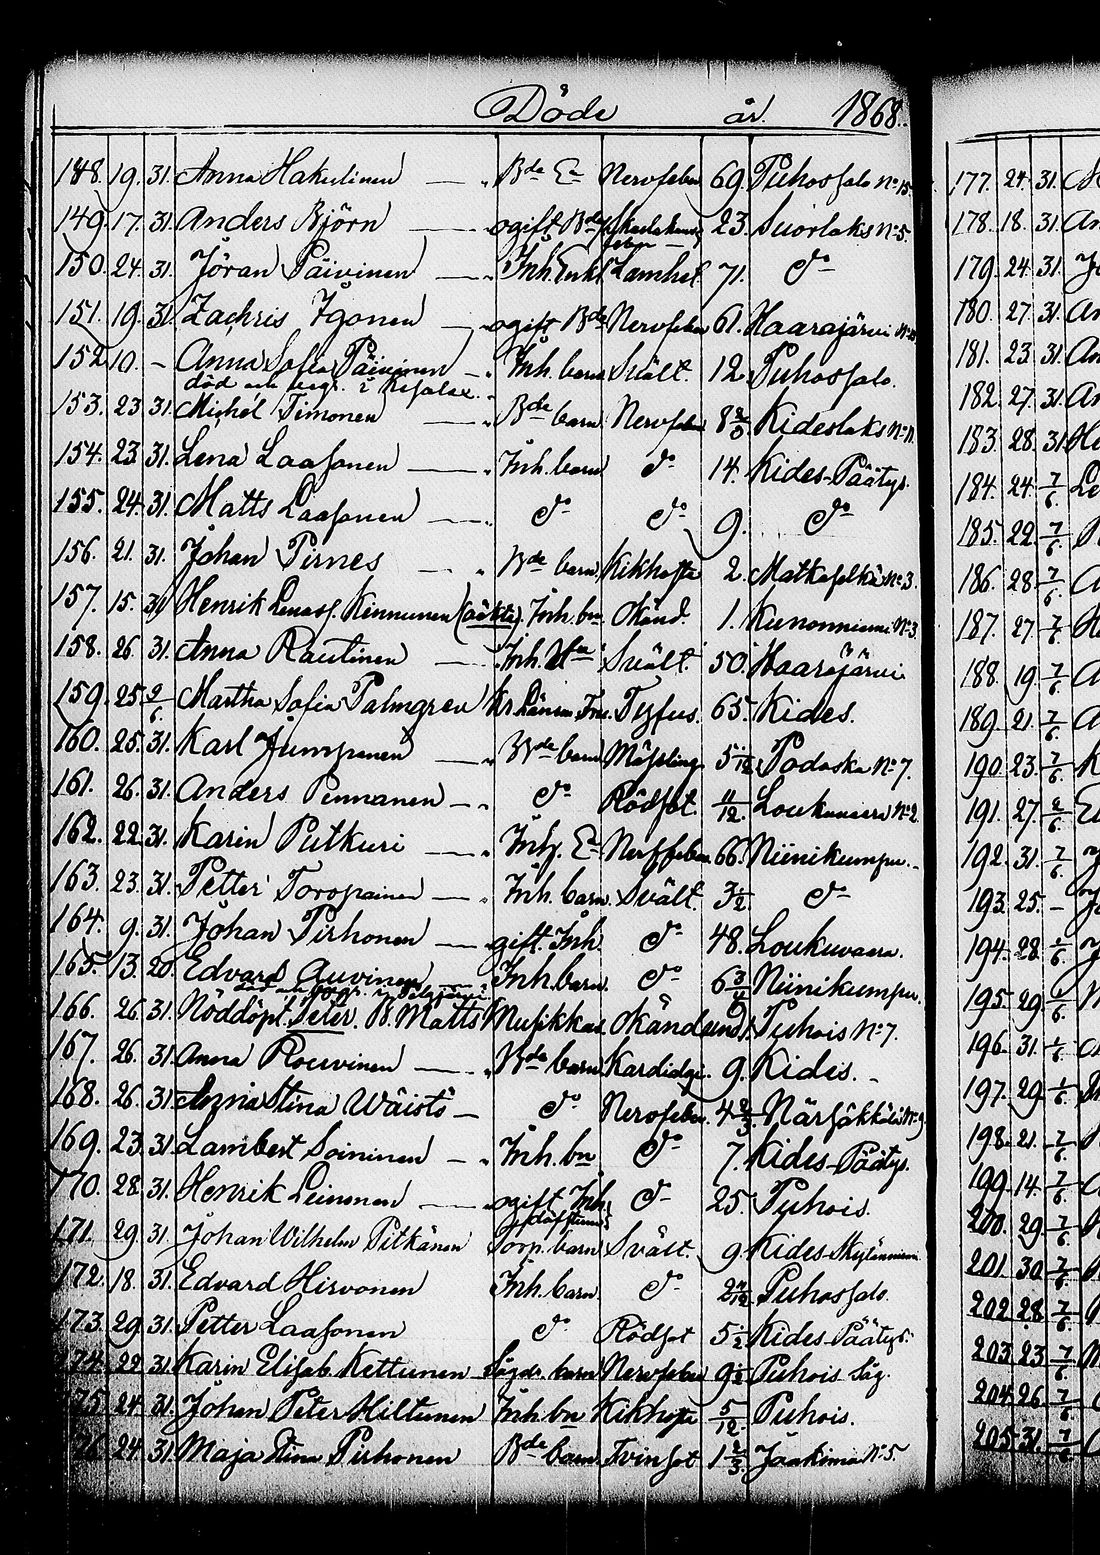 Döde år 1868.
148. 19. 31. Anna Hakulinen — Bde Ea Nervfeber 69. Puhossalo No 15.
149. 17. 31. Anders Björn — ogift Bde Skarlakans feber 23. Suorlaks No 5.
150. 24. 31. Jöran Päivinen — Inh. Enkl. Lamhet. 71. do
151. 19. 31. Zachris Igonen — ogift Bde Nervfeber 61. Haarajärvi
152. 10. - Anna Sofia Päivinen — Inh. barn Svält. 12. Puhossalo.
död och begr. i
153. 23. 31. Michel Timonen — Bde barn Nervfeber 8 Kideslaks No 11.
154. 23. 31. Lena Laasonen — Inh. barn do 14. Kides-Päätys.
155. 24. 31. Matts Laasonen — do do 9. do
156. 21. 31. Johan Pirnes — Bde barn Kikhosta 2. Matkaselkä No 3.
157. 15. 31. Henrik Kinnunen (oäkta) Inh. bn Okänd. 1. Kunonniemi No 3.
158. 26. 31. Anna Rautinen — Inh. Svält. 50. Haarajärvi
159. 25. 2/6. Martha Sofia Palmgren Kr. Länsm. Tyfus. 65. Kides.
160. 25. 31. Karl Jumpanen — Bde barn Mässling 5 1/12 Potoska No 7.
161. 26. 31. Anders Pennanen — do Rödsot. 11/12. Loukuvaara No 2.
162. 22. 31. Karin Putkuri — Inh. Ea Nervfeber. 66. Niinikumpu.
163. 23. 31. Petter Toropainen — Inh. barn. Svält. 3 1/2. do
164. 9. 31. Johan Pirhonen — gift. Inh. do 48. Loukuvaara.
165. 13. 20. Edvard Auvinen — Inh. barn. do 6 3/4 Niinikumpu.
166. 26. 31. Nöddöpt. Peter. B. Matts Musikkas Okänd Puhois No 7.
167. 26. 31. Anna Rouvinen — Bde barn Kardialgi. 9. Kides.
168. 26. 31. Anna Stina Wäistö — do Nervfeber. 4 2/3. Närsäkkälä No 9.
169. 23. 31. Lambert Soininen — Inh. bn do 7. Kides-Päätys.
170. 28. 31. Henrik Leinonen — ogift Inh. do 25. Puhois.
171. 29. 31. Johan Wilhelm Pitkänen Torp. barn Svält. 9. Kides
172. 18. 31. Edvard Hirvonen Inh. barn. do Puhossalo.
173. 29. 31. Petter Laasonen do Rödsot 5 1/2 Kides-Päätys.
174. 22. 31. Karin Elisab. Kettunen Sågds. barn Nervfeber 9 1/2 Puhois Såg.
175. 24. 31. Johan Peter Hiltunen Inh. bn Kikhosta 5/12. Puhois.
176. 24. 31. Maja Stina Pirhonen Bde barn Tvinsot 1 2/3. Jaakima No 5.
177. 24. 31.
178. 18. 31. An
179. 24. 31. Jo
180. 27. 31. An
181. 23. 31. An
182. 27. 31. An
183. 28. 31. He
184. 24. 7/6. Le
185. 22. 7/6.
186. 28. 7/6. A
187. 27. 7/6. He
188. 19. 7/6. A
189. 21. 7/6. A
190. 23. 7/6. K
191. 27. 2/6. Ed
192. 31. 7/6. J
193. 25. -
194. 28.
195. 29.
196. 31.
197. 29.
198. 21. 7/6.
199. 14. 7/6. A
200. 29. 7/6.
201. 30. 7/6.
202. 28. 7/6.
203. 23. 7/6. M
204. 26. 7/6.
205. 31. 7/6.